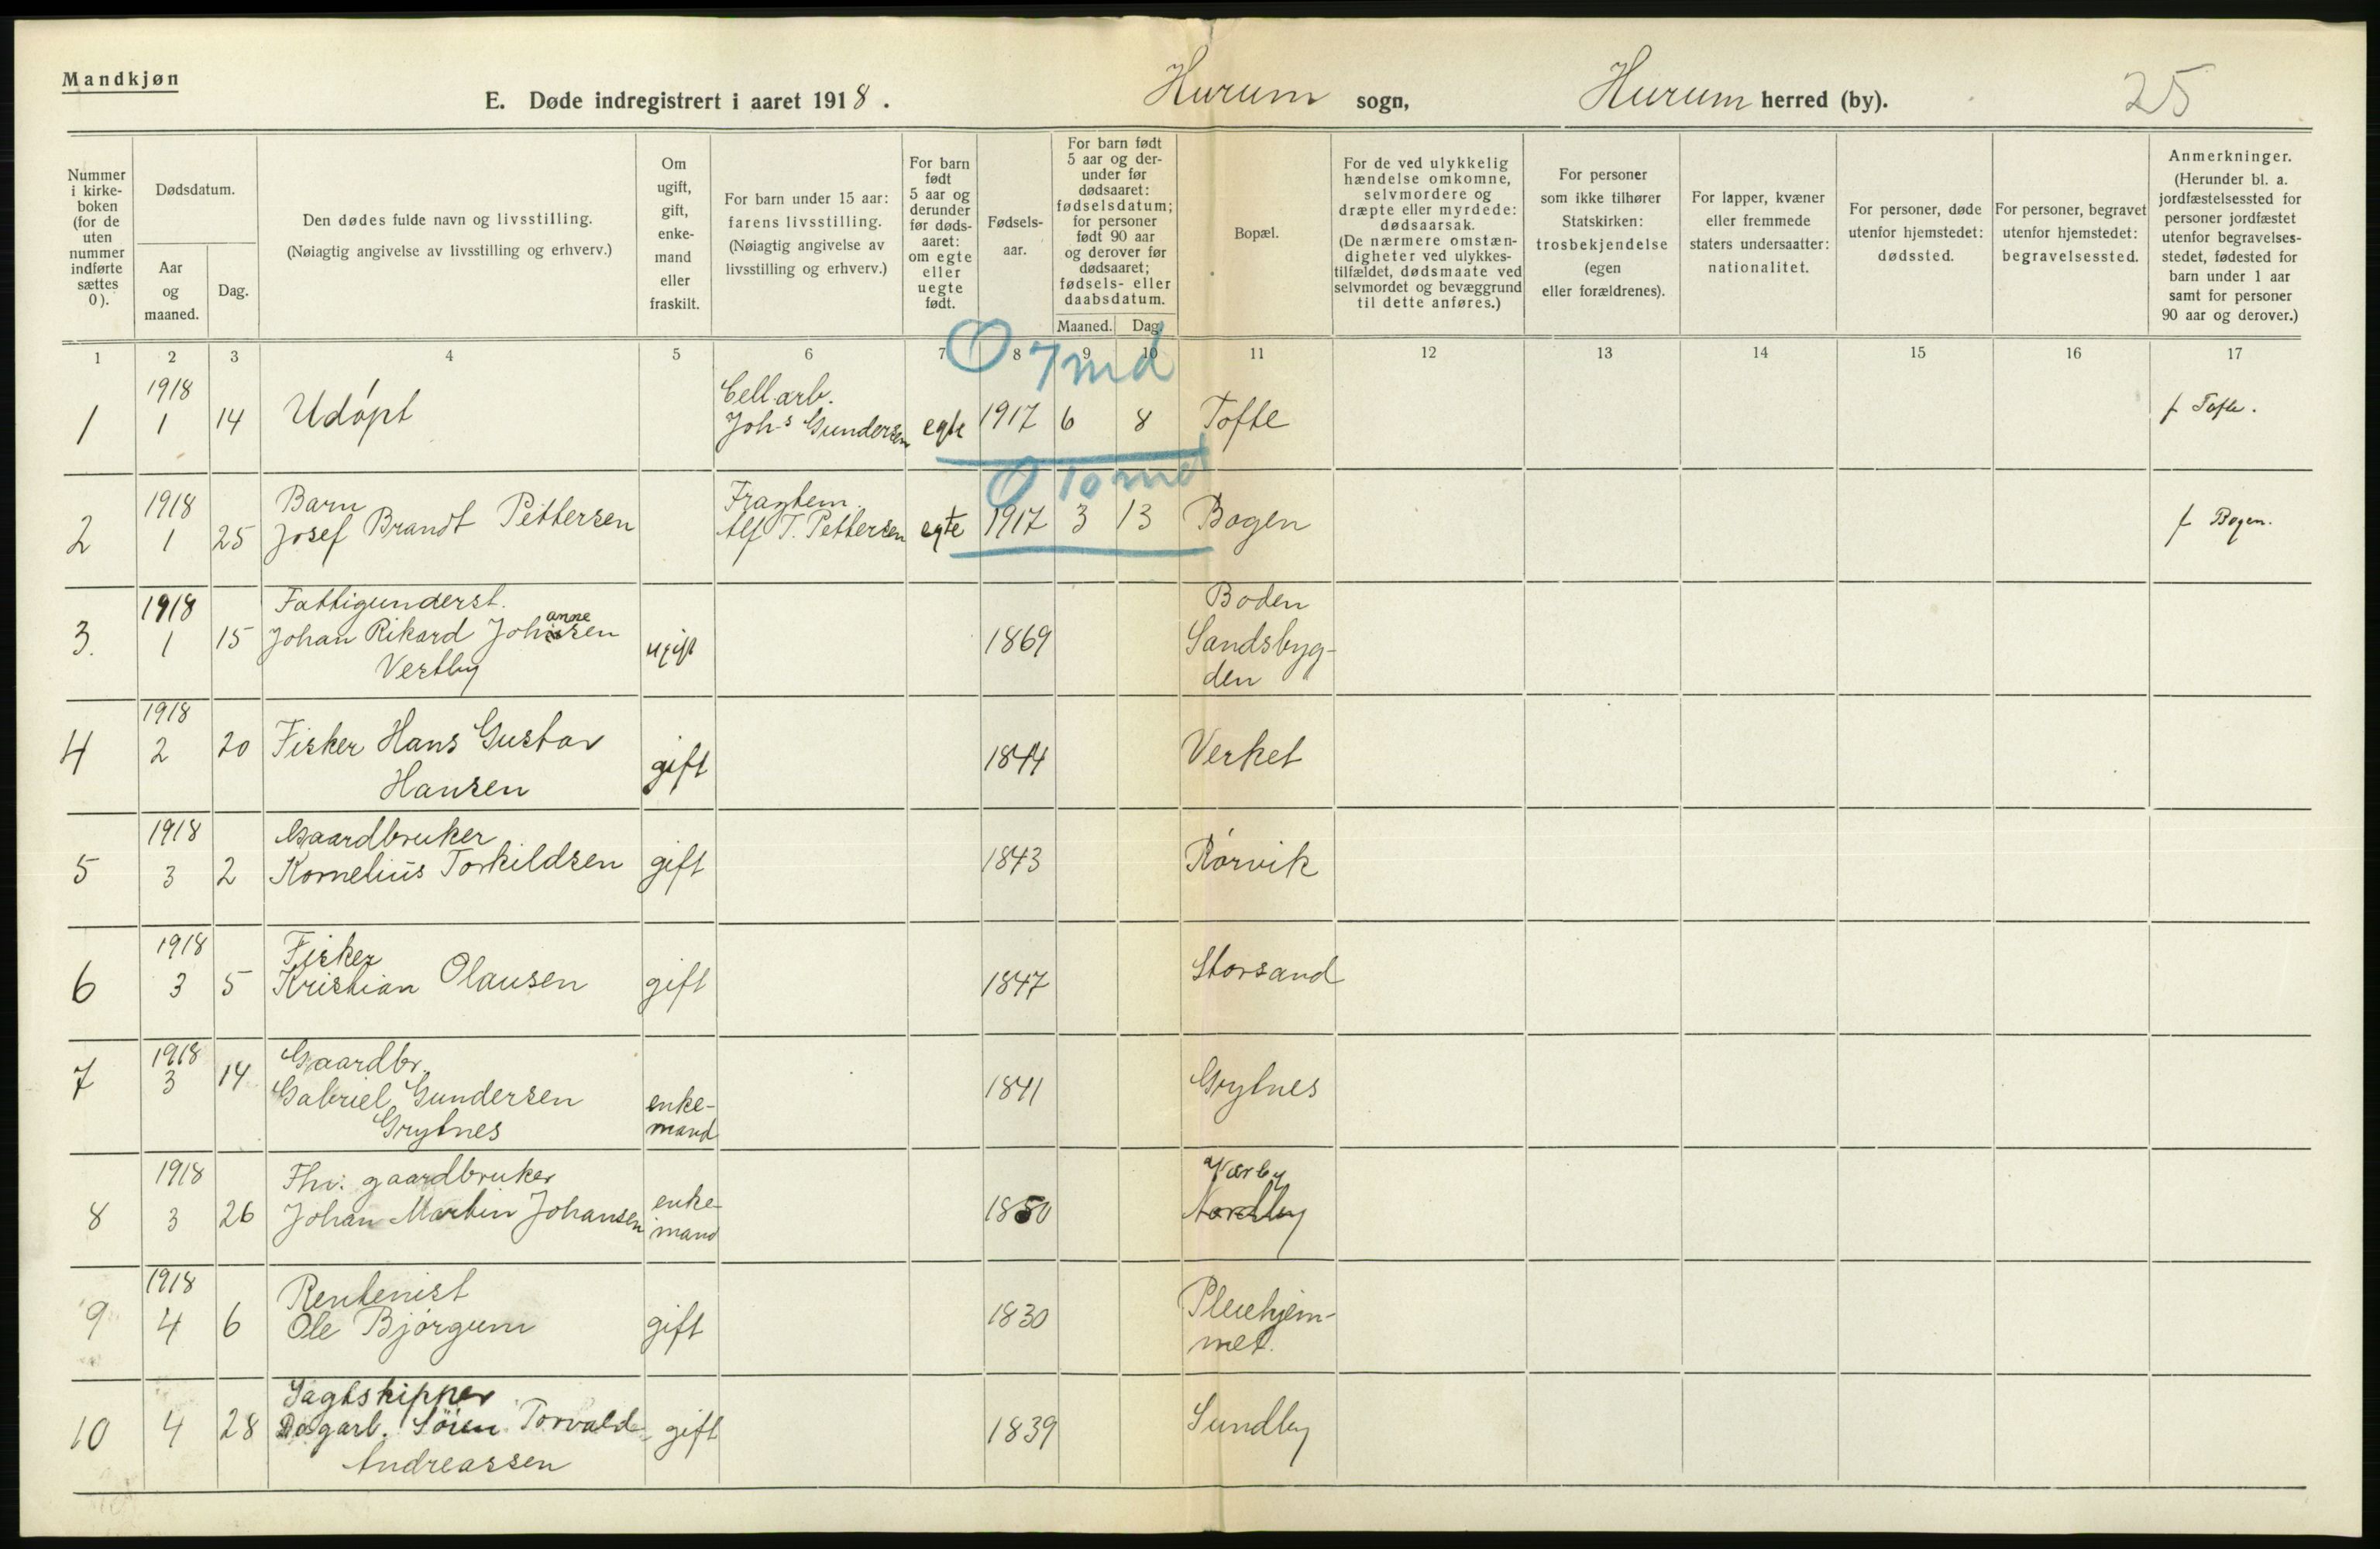 Mandkjøn
E. Døde indregistrert i aaret 1918. Hurum sogn, Hurum herred (by). 25
Nummer i kirke- boken (for de uten nummer indførte sættes 0).
Dødsdatum.
Aar og maaned.
Dag.
Den dødes fulde navn og livsstilling.
(Nøiagtig angivelse av livsstilling og erhverv.)
Om ugift, gift, enke- mand eller fraskilt.
For barn under 15 aar: farens livsstilling. (Nøiagtig angivelse av livsstilling og erhverv.)
For barn født 5 aar og derunder før døds- aaret: om egte eller uegte født.
Fødsels- aar.
For barn født 5 aar og der- under før dødsaaret: fødselsdatum; for personer født 90 aar og derover før dødsaaret; fødsels- eller daabsdatum.
Maaned. Dag.
Bopæl.
For de ved ulykkelig hændelse omkomne, selvmordere og dræpte eller myrdede: dødsaarsak. (De nærmere omstæn- digheter ved ulykkes- tilfældet, dødsmaate ved selvmordet og bevæggrund til dette anføres.)
For personer som ikke tilhører Statskirken: trosbekjendelse (egen eller forældrenes).
For lapper, kvæner eller fremmede staters undersaatter: nationalitet.
For personer, døde utenfor hjemstedet: dødssted.
For personer, begravet utenfor hjemstedet: begravelsessted.
Anmerkninger. (Herunder bl. a. jordfæstelsessted for personer jordfæstet utenfor begravelses- stedet, fødested for barn under 1 aar samt for personer 90 aar og derover.)
1 2 3 4 5 6 7 8 9 10 11 12 13 14 15 16 17
0 7 md
1918 Cell.arb.
1 1 14 Udøpt Joh-s Gundersen egte 1917 6 8 Tofte f Tofte.
0 10 md
1918 Barn Fragtem
2 1 25 Josef Brandt Pettersen Alf T. Pettersen egte 1917 3 13 Bogen f Bogen.
1918 Fattigunderst. Boden
3. 1 15 Johan Rikard Johannesen ugift 1869 Sandsbyg-
Vestby den
1918
4 2 20 Fisker Hans Gustav gift 1844 Verket
Hansen
1918 Gaardbruker
5 3 2 Kornelius Torkildsen gift 1843 Rørvik
1918 Fisker
6 3 5 Kristian Olausen gift 1847 Storsand
1918 Gaardbr.
7 3 14 Gabriel Gundersen enke- 1841 Grytnes
Grytnes mand
1918 Fhv. gaardbruker enke- Kjærby
8 3 26 Johan Martin Johansen mand 1850 Nordby
1918 Rentenist Pleiehjem-
9 4 6 Ole Bjørgum gift 1830 met.
Jagtskipper
10 4 28 Dagarb. Søren Torvald gift 1839 Sundby
Andreassen